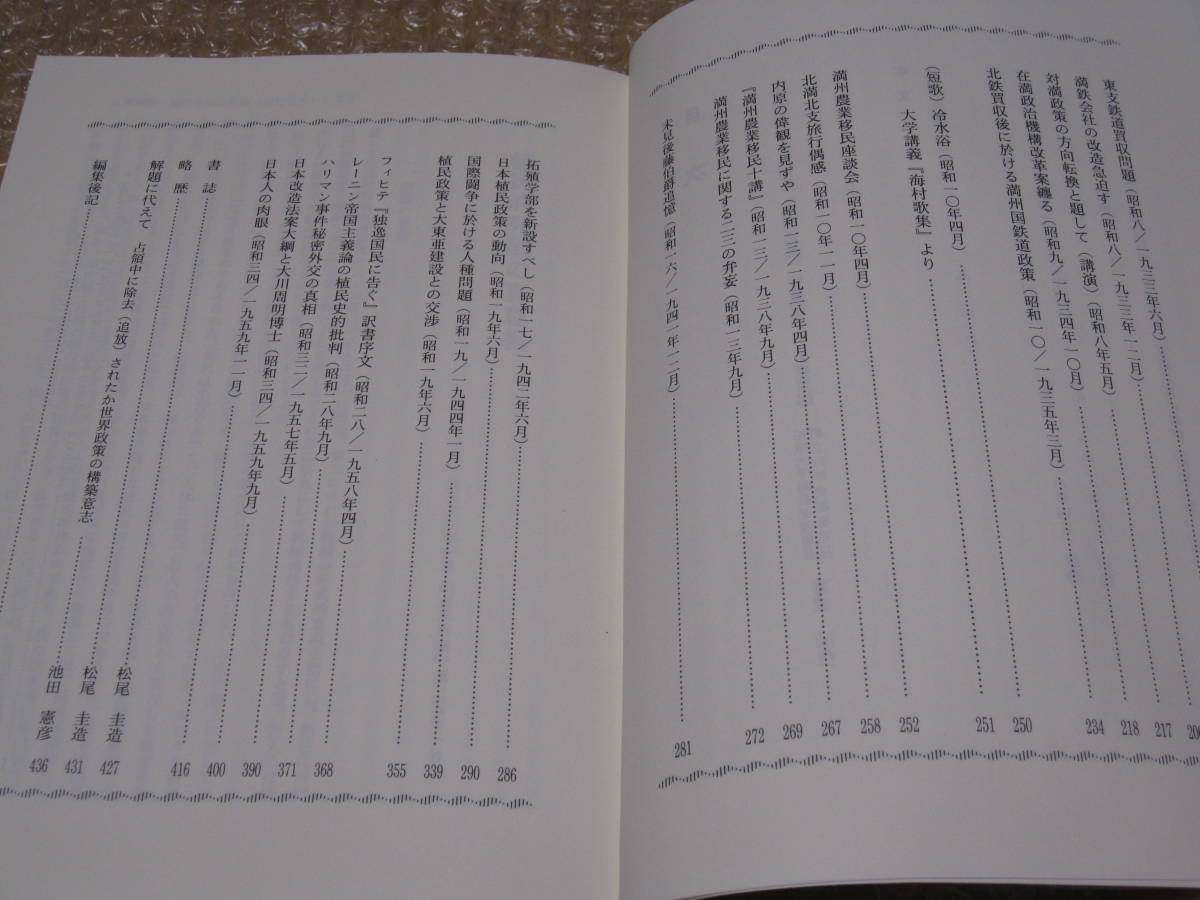 東支鉄道買収問題(昭和八/一九三三年六月)
満鉄会社の改造急迫す(昭和八/一九三三年一二月)……217
対満政策の方向転換と題して(講演)(昭和八年五月)……218
在満政治機構改革案纏る(昭和九/一九三四年一〇月)……234
北鉄買収後に於ける満州国鉄道政策(昭和一〇/一九三五年三月)……250
(短歌)冷水浴(昭和一〇年四月)……251
大学講義『海村歌集』より 252
満州農業移民座談会(昭和一〇年四月)……258
北満北支旅行偶感(昭和一〇年一一月)……267
内原の偉観を見ずや(昭和一三/一九三八年四月)……269
『満州農業移民十講』(昭和一三/一九三八年九月)……272
満州農業移民に関する二三の弁妄(昭和一三年九月)
未見後藤伯爵追憶(昭和一六/一九四一年一二月)……281
拓殖学部を新設すべし(昭和一七/一九四二年六月)……286
日本植民政策の動向(昭和一九年六月)……290
国際闘争に於ける人種問題(昭和一九/一九四四年一月)……339
植民政策と大東亜建設との交渉(昭和一九年六月)……355
フィヒテ『独逸国民に告ぐ』訳書序文(昭和二八/一九五八年四月)……368
レーニン帝国主義論の植民史的批判(昭和二八年九月)……371
ハリマン事件秘密外交の真相(昭和三二/一九五七年五月)……390
日本改造法案大綱と大川周明博士(昭和三四/一九五九年九月)……400
日本人の肉眼(昭和三四/一九五九年一一月)……416
書誌……松尾 圭造 427
略歴……松尾 圭造 431
解題に代えて 占領中に除去(追放)されたか世界政策の構築意志……池田 憲彦 436
編集後記